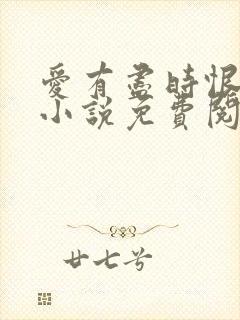 愛有盡時恨
小說免費閱
廿七兮